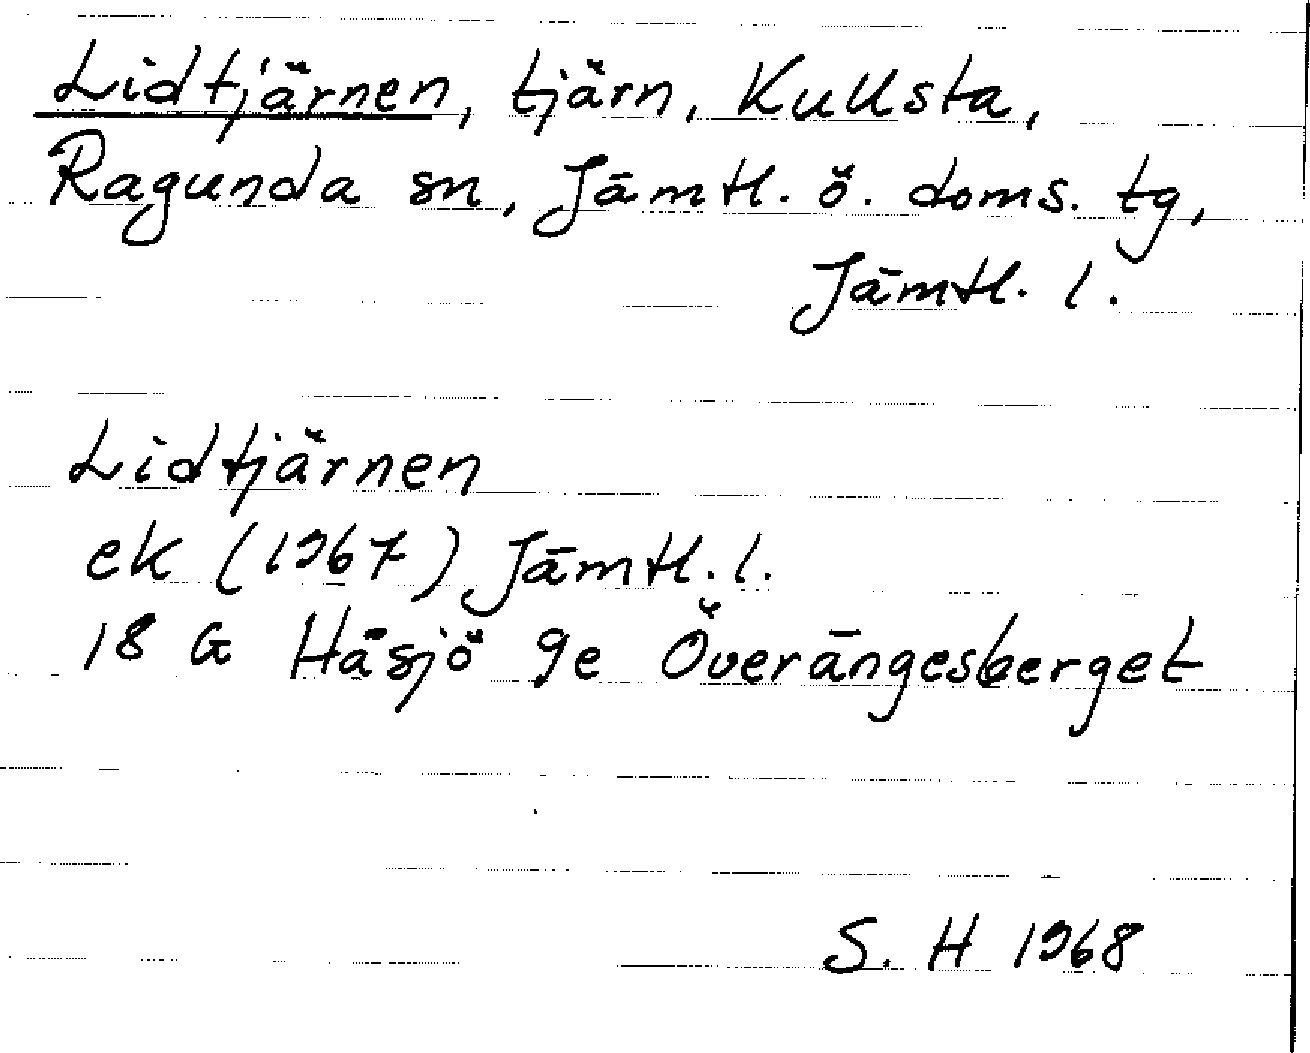 Lidtjärnen, tjärn, Kullsta,
Ragunda sn, Jämtl. ö. doms. tg,
Jämtl. l.
Lidtjärnen
ek (1967) Jämtl. l.
18 G Håsjö 9e Överängesberget
S. H 1968